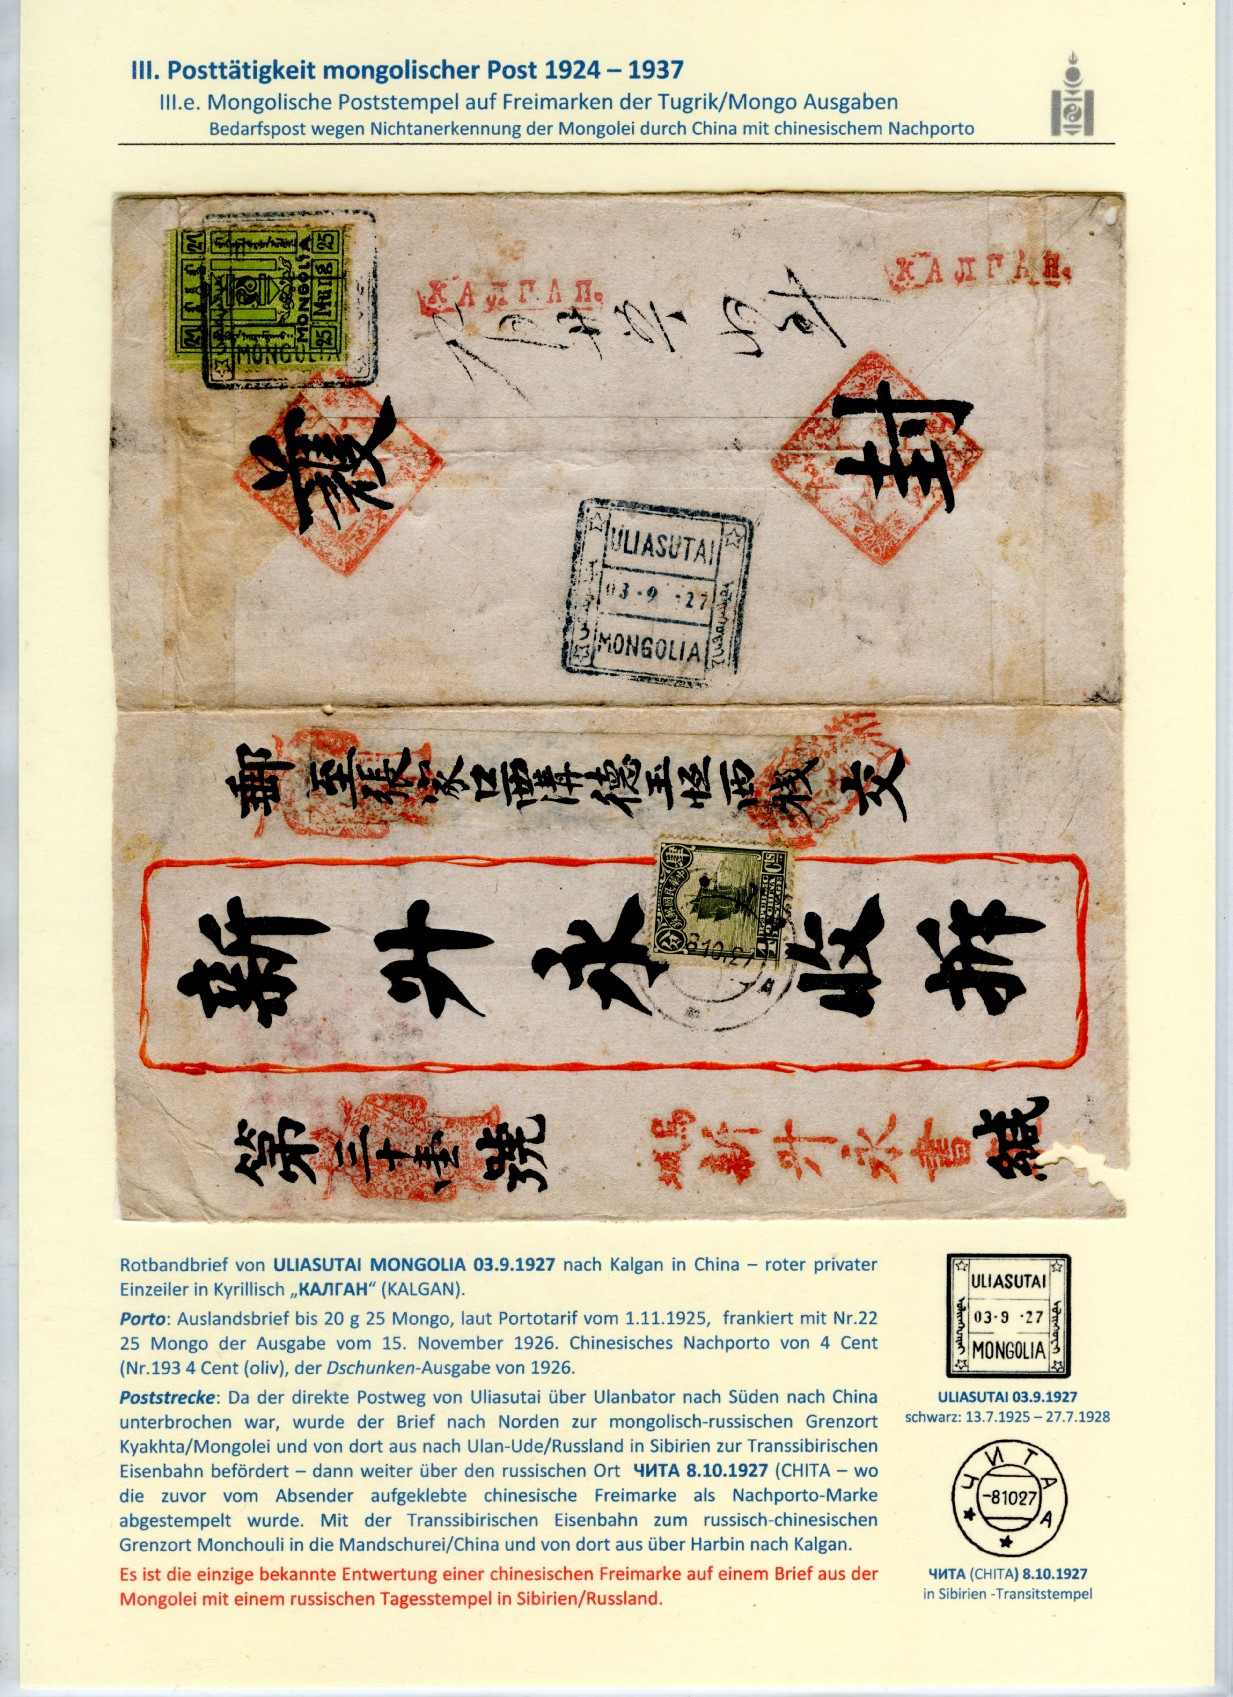 III. Posttätigkeit mongolischer Post 1924 – 1937
III.e. Mongolische Poststempel auf Freimarken der Tugrik/Mongo Ausgaben
Bedarfspost wegen Nichtanerkennung der Mongolei durch China mit chinesischem Nachporto
25
25
MONGOLIA
25 Mung 25
MONGOLIA
КАЛГАН.
КАЛГАН.
護
封
ULIASUTAI
03-9 -27
MONGOLIA
郵 至張家口西溝德玉恒西棧 交
新升永 收拆
4 CTS
8.10.27
А
第三十壹號
新升永書 緘
Rotbandbrief von ULIASUTAI MONGOLIA 03.9.1927 nach Kalgan in China – roter privater
Einzeiler in Kyrillisch „КАЛГАН“ (KALGAN).
Porto: Auslandsbrief bis 20 g 25 Mongo, laut Portotarif vom 1.11.1925, frankiert mit Nr.22
25 Mongo der Ausgabe vom 15. November 1926. Chinesisches Nachporto von 4 Cent
(Nr.193 4 Cent (oliv), der Dschunken-Ausgabe von 1926.
Poststrecke: Da der direkte Postweg von Uliasutai über Ulanbator nach Süden nach China
unterbrochen war, wurde der Brief nach Norden zur mongolisch-russischen Grenzort
Kyakhta/Mongolei und von dort aus nach Ulan-Ude/Russland in Sibirien zur Transsibirischen
Eisenbahn befördert – dann weiter über den russischen Ort ЧИТА 8.10.1927 (CHITA – wo
die zuvor vom Absender aufgeklebte chinesische Freimarke als Nachporto-Marke
abgestempelt wurde. Mit der Transsibirischen Eisenbahn zum russisch-chinesischen
Grenzort Monchouli in die Mandschurei/China und von dort aus über Harbin nach Kalgan.
Es ist die einzige bekannte Entwertung einer chinesischen Freimarke auf einem Brief aus der
Mongolei mit einem russischen Tagesstempel in Sibirien/Russland.
ULIASUTAI
03-9 ·27
MONGOLIA
ULIASUTAI 03.9.1927
schwarz: 13.7.1925 – 27.7.1928
ЧИТА
-81027
А
ЧИТА (CHITA) 8.10.1927
in Sibirien -Transitstempel